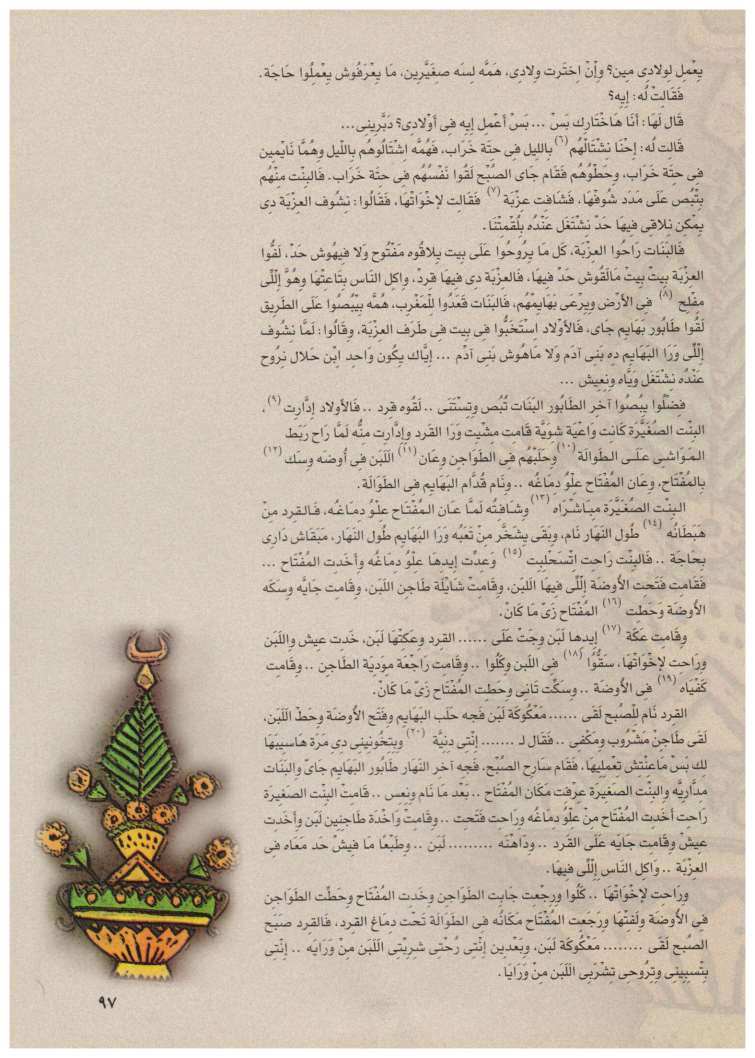 يِعْمِل لولادى مين؟ وإنْ اِختَرت ولادِى، هَمَّه لسَه صغَيَّرين، مَا يِعْرَفُوش يِعْملُوا حَاجَة.
فَقَالِتْ لُه: إيه؟
قَال لَهَا: أنَا هَاخْتَارِك بَسْ ... بَسْ أعمل إيه فى أوْلادِى؟ دَبَّرِينِى...
قَالِت لُه: إحْنَا نشْتَالْهُم (٦) بالليل فى حِتة خَرَاب، فَهُمَّه اشْتَالُوهُم بِالليْل وهُمَّا نَايْمين
فى حِتة خَرَاب، وحَطُوهُم فَقَام جَاى الصُبْح لَقُوا نَفْسُهُم فى حِتة خَرَاب. فَالبِنْت منْهُم
بتْبُص عَلَى مَدَد شُوفْهَا، فَشَافت عِزْبَة (٧) فَقَالت لإخْوَاتْهَا، فَقَالُوا: نِشُوف العِزْبَة دِى
يِمْكن نِلاقِى فِيهَا حَدْ نشْتَغَل عَنْدُه بِلُقْمِتْنَا.
فَالبَنَات رَاحُوا العِزبَة، كُل مَا يِرُوحُوا عَلَى بيت يِلاقُوه مَفْتُوح وَلا فيهُوش حَدْ، لَفُّوا
العزبَة بيتْ بيتْ مَالقُوش حَدْ فيهَا، فَالعزبَة دى فيهَا قردْ، واكِل النَاس بِتَاعِتْهَا وهُوَّ إللِّى
مِفْلح (٨) فى الأرْض ويِرْعَى بَهَايِمْهُم، فَالبَنَات قَعَدُوا للْمَغْرب، هُمَّه بِيْبُصُوا عَلَى الطَرِيق
لَقُوا طَابُور بَهَايِم جَاى، فَالأوْلاد اسْتَخَبُّوا فى بيت فى طَرَف العزبَة، وقَالُوا: لَمَّا نشُوف
إللِّى وَرَا البَهَايم ده بَنى آدَم وَلا مَاهُوش بَنى آدَم ... إيَّاك يِكُون وَاحِد ابْن حَلال نرُوح
عَنْدُه نشْتَغَل وَيَّاه ونِعِيش ...
فِضْلُوا يبُصُوا آخر الطَابُور البَنَات تُبُص وتِسْتَنَى .. لَقُوه قرد .. فَالأولاد إدَّارِت (٩)،
البنْت الصُغَيَّرَة كَانت وَاعْيَة شوَيَّة قَامِت مشْيت وَرَا القرد وإدَّارت منُّه لَمَّا رَاح رَبَط
المَوَاشى عَلَى الطوالَة (١٠) وحَلَبْهُم فى الطَوَاجن وعَان (١١) اللَبَن فى أُوضَه وسَك (١٢)
بِالمُفْتَاح، وعَان المُفْتَاح علْوْ دمَاغُه .. ونَام قُدَّام البَهَايم فى الطوَالَة.
البنْت الصُغَيَّرَة مبَاشْرَاه (١٣) وشَافتُه لَمَّا عَان المُفْتَاح علْوْ دمَاغُه، فَالقرد مِنْ
هَبَطَانُه (١٤) طُول النَهَار نَام، وبَقَى يشَخَّر منْ تَعَبُه وَرَا البَهَايم طُول النَهَار، مَبَقَاش دَارى
بحَاجَة .. فَالبنْت رَاحت اتْسَحْلبت (١٥) وَعَدِّت إيدهَا علْوْ دمَاغُه وأخَدت المُفْتَاح ...
فَقَامت فَتَحت الأُوضَة إللِّى فيهَا اللَبَن، وقَامت شَايْلَة طَاجن اللَبَن، وقَامت جَايَّه وسكَه
الأُوضَة وحَطت (١٦) المُفْتَاح زَىّ مَا كَانْ.
وقَامت عَكَّة (١٧) إيدهَا لَبَن وجَتْ عَلَى ...... القرد وعَكتْهَا لَبَن، خَدت عيش واللَبَن
ورَاحت لإخْوَاتْهَا، سَقُّوا (١٨) فى اللَبن وكَلُوا .. وقَامت رَاجْعَة مودِيَة الطَاجن .. وقَامت
كَفْيَاه (١٩) فى الأُوضَة .. وسكِّت تَانى وحَطت المُفْتَاح زَىّ مَا كَانْ.
القرد نَام للصُبح لَقَى ...... مَعْكُوكَة لَبَن فَجه حَلَب البَهَايم وفَتَح الأُوضَة وحَطْ اللَبَن،
لَقَى طَاجنْ مَشْرُوب ومَكْفى .. فَقَال لـ ....... إنْتى دنيَّة (٢٠) وبتخُونينى دى مَرَة هَاسيبهَا
لك بَسْ مَاعَنْتش تعْمليهَا، فَقَام سَارح الصُبْح، فَجه آخر النَهَار طَابُور البَهَايم جَاىْ والبَنَات
مدَّاريَّه والبنْت الصغيرة عرفت مَكَان المُفْتَاح .. بَعْد مَا نَام ونِعس .. قَامت البنْت الصغيرة
رَاحت أخَدت المُفْتَاح منْ علْوْ دمَاغُه ورَاحت فَتَحت .. وقَامت وَاخْدة طَاجنين لَبَن وأخَدت
عيش وقَامت جَايَه عَلَى القرد .. ودَاهْنَه ......... لَبَن .. وطَبْعًا مَا فيش حَد مَعَاه فى
العزْبَة .. وَاكل النَاس إللِّى فيهَا.
ورَاحت لإخْوَاتْهَا .. كَلُوا ورِجعت جَابت الطَوَاجن وخَدت المُفْتَاح وحَطِّت الطَوَاجن
فى الأُوضَة ولَفتْهَا ورَجَعت المُفْتَاح مَكَانُه فى الطوَالَة تَحْت دمَاغ القرد، فَالقرد صَبَح
الصُبح لَقَى ........ مَعْكُوكَة لَبَن، وبَعْدين إنْتى رُحْتى شربتى اللَبَن منْ وَرَايَه .. إنْتى
بتْسيبينى وتروحى تشْرَبى اللَبَن منْ وَرَايَا.
٩٧